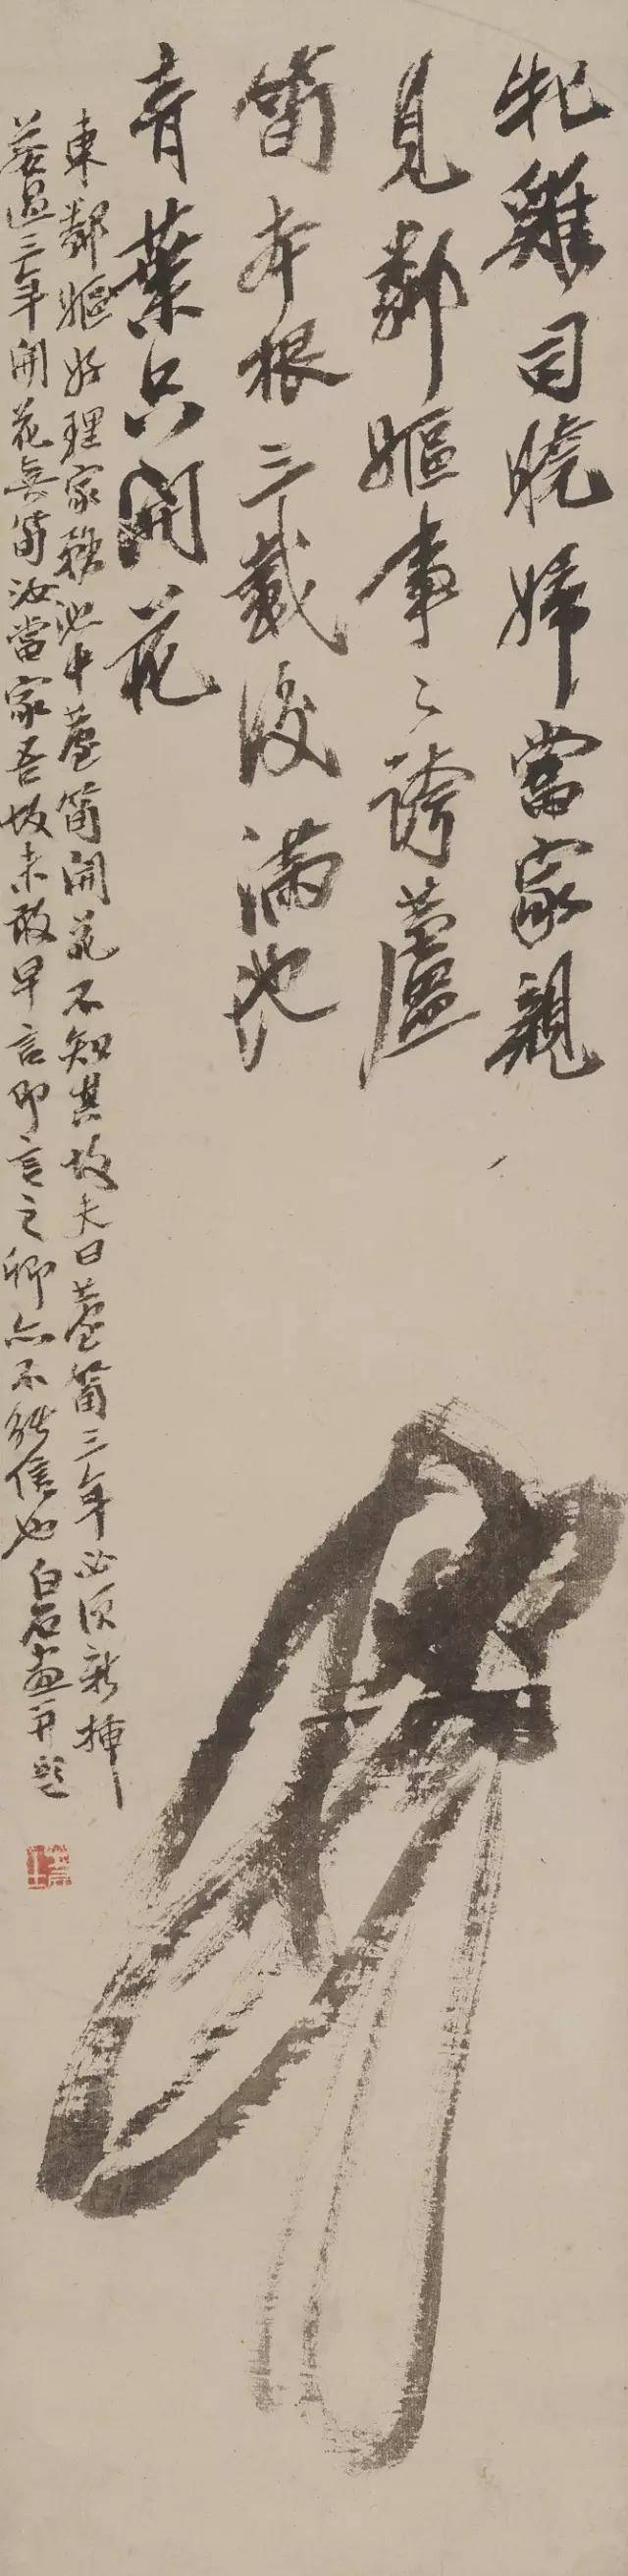 牝雞司曉婦當家親
見鄰嫗事〻誇蘆
筍本根三載後滿池
青葉只開花
東鄰嫗好理家務必中蘆筍開花不知其故夫曰蘆筍三年必須新插
若過三年開花無筍汝當家吾故未敢早言即言之卿亦不能信也
白石畫并題